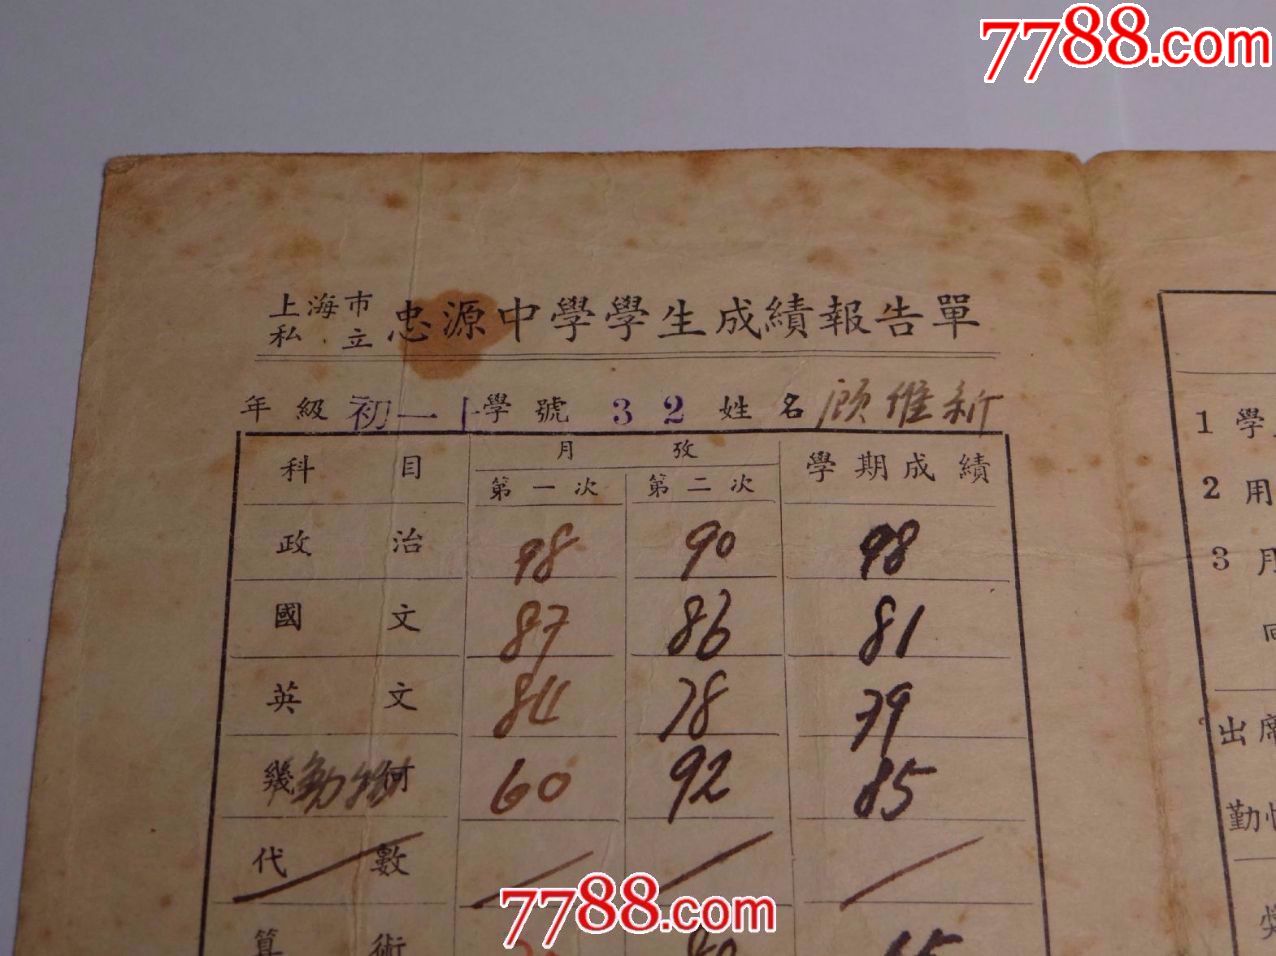 7788.com
上海市
私立
忠源中學學生成績報告單
年級 初一 學號 32 姓名 顧維新
科目 月攷 學期成績
第一次 第二次
政治 98 90 98
國文 87 86 81
英文 84 78 79
幾何 動物 60 92 85
代數
7788.com
算術
1 學
2 用
3 月
出席
勤